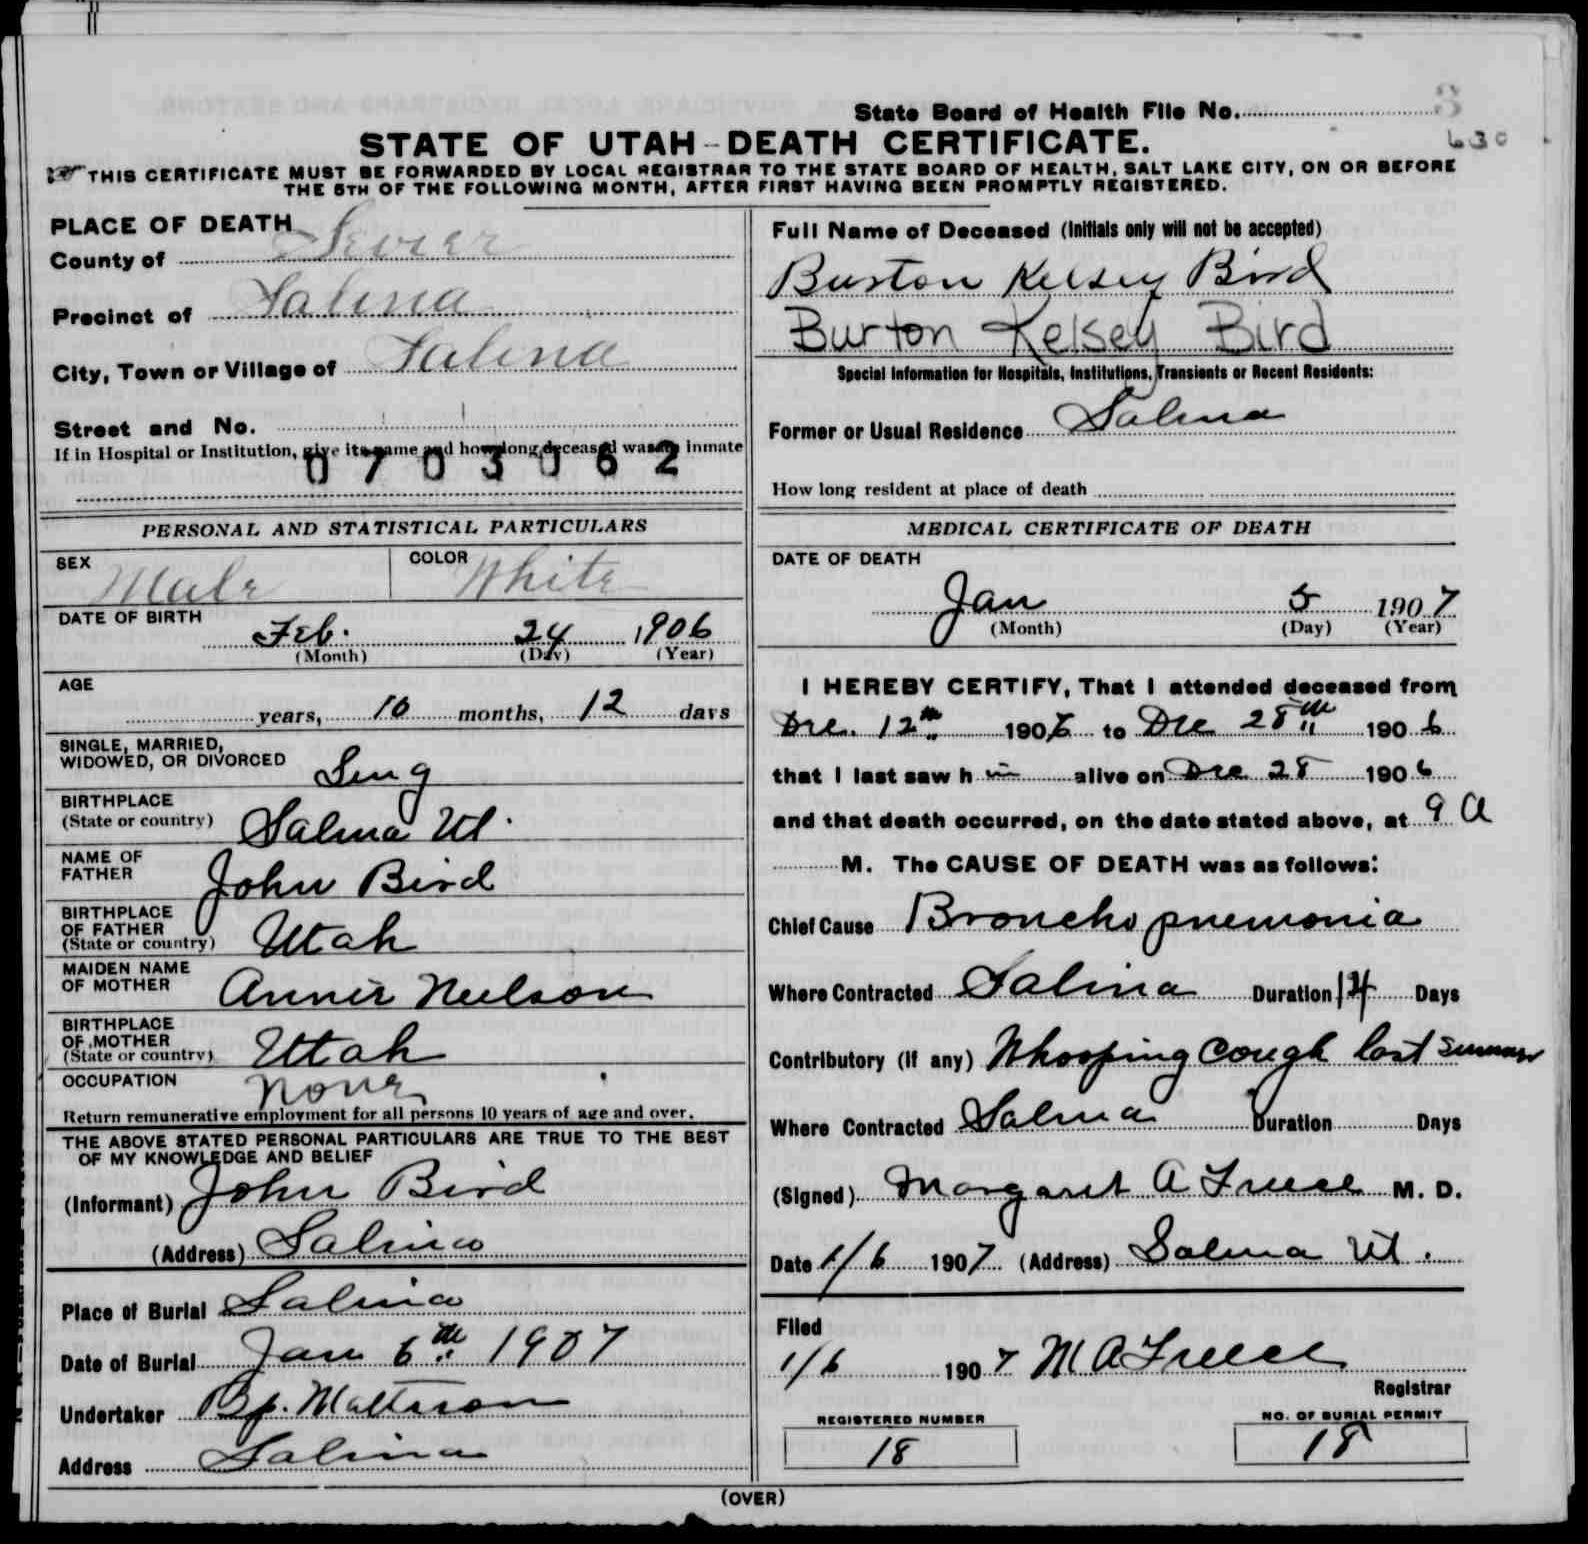 State Board of Health File No.
630
STATE OF UTAH - DEATH CERTIFICATE.
THIS CERTIFICATE MUST BE FORWARDED BY LOCAL REGISTRAR TO THE STATE BOARD OF HEALTH, SALT LAKE CITY, ON OR BEFORE
THE 5TH OF THE FOLLOWING MONTH, AFTER FIRST HAVING BEEN PROMPTLY REGISTERED.
PLACE OF DEATH
County of Sevier
Precinct of Salina
City, Town or Village of Salina
Street and No.
If in Hospital or Institution, give its name and how long deceased was an inmate
0703062
PERSONAL AND STATISTICAL PARTICULARS
SEX Male COLOR White
DATE OF BIRTH
Feb. 24 1906
(Month) (Day) (Year)
AGE
years, 10 months, 12 days
SINGLE, MARRIED,
WIDOWED, OR DIVORCED Sing
BIRTHPLACE
(State or country) Salina Ut.
NAME OF
FATHER John Bird
BIRTHPLACE
OF FATHER
(State or country) Utah
MAIDEN NAME
OF MOTHER Annie Neilson
BIRTHPLACE
OF MOTHER
(State or country) Utah
OCCUPATION None
Return remunerative employment for all persons 10 years of age and over.
THE ABOVE STATED PERSONAL PARTICULARS ARE TRUE TO THE BEST
OF MY KNOWLEDGE AND BELIEF
(Informant) John Bird
(Address) Salina
Place of Burial Salina
Date of Burial Jan 6th 1907
Undertaker Bp. Mattsson
Address Salina
Full Name of Deceased (Initials only will not be accepted)
Burton Kelsey Bird
Burton Kelsey Bird
Special Information for Hospitals, Institutions, Transients or Recent Residents:
Former or Usual Residence Salina
How long resident at place of death
MEDICAL CERTIFICATE OF DEATH
DATE OF DEATH
Jan 5 1907
(Month) (Day) (Year)
I HEREBY CERTIFY, That I attended deceased from
Dec. 12th 1906 to Dec 28th 1906
that I last saw h im alive on Dec 28 1906
and that death occurred, on the date stated above, at 9 A
M. The CAUSE OF DEATH was as follows:
Chief Cause Broncho pnemonia
Where Contracted Salina Duration 14 Days
Contributory (if any) Whooping Cough last summer
Where Contracted Salina Duration Days
(Signed) Margaret A Freece M. D.
Date 1/6 1907 (Address) Salina Ut.
Filed
1/6 1907 M A Freece
Registrar
REGISTERED NUMBER
18
NO. OF BURIAL PERMIT
18
(OVER)